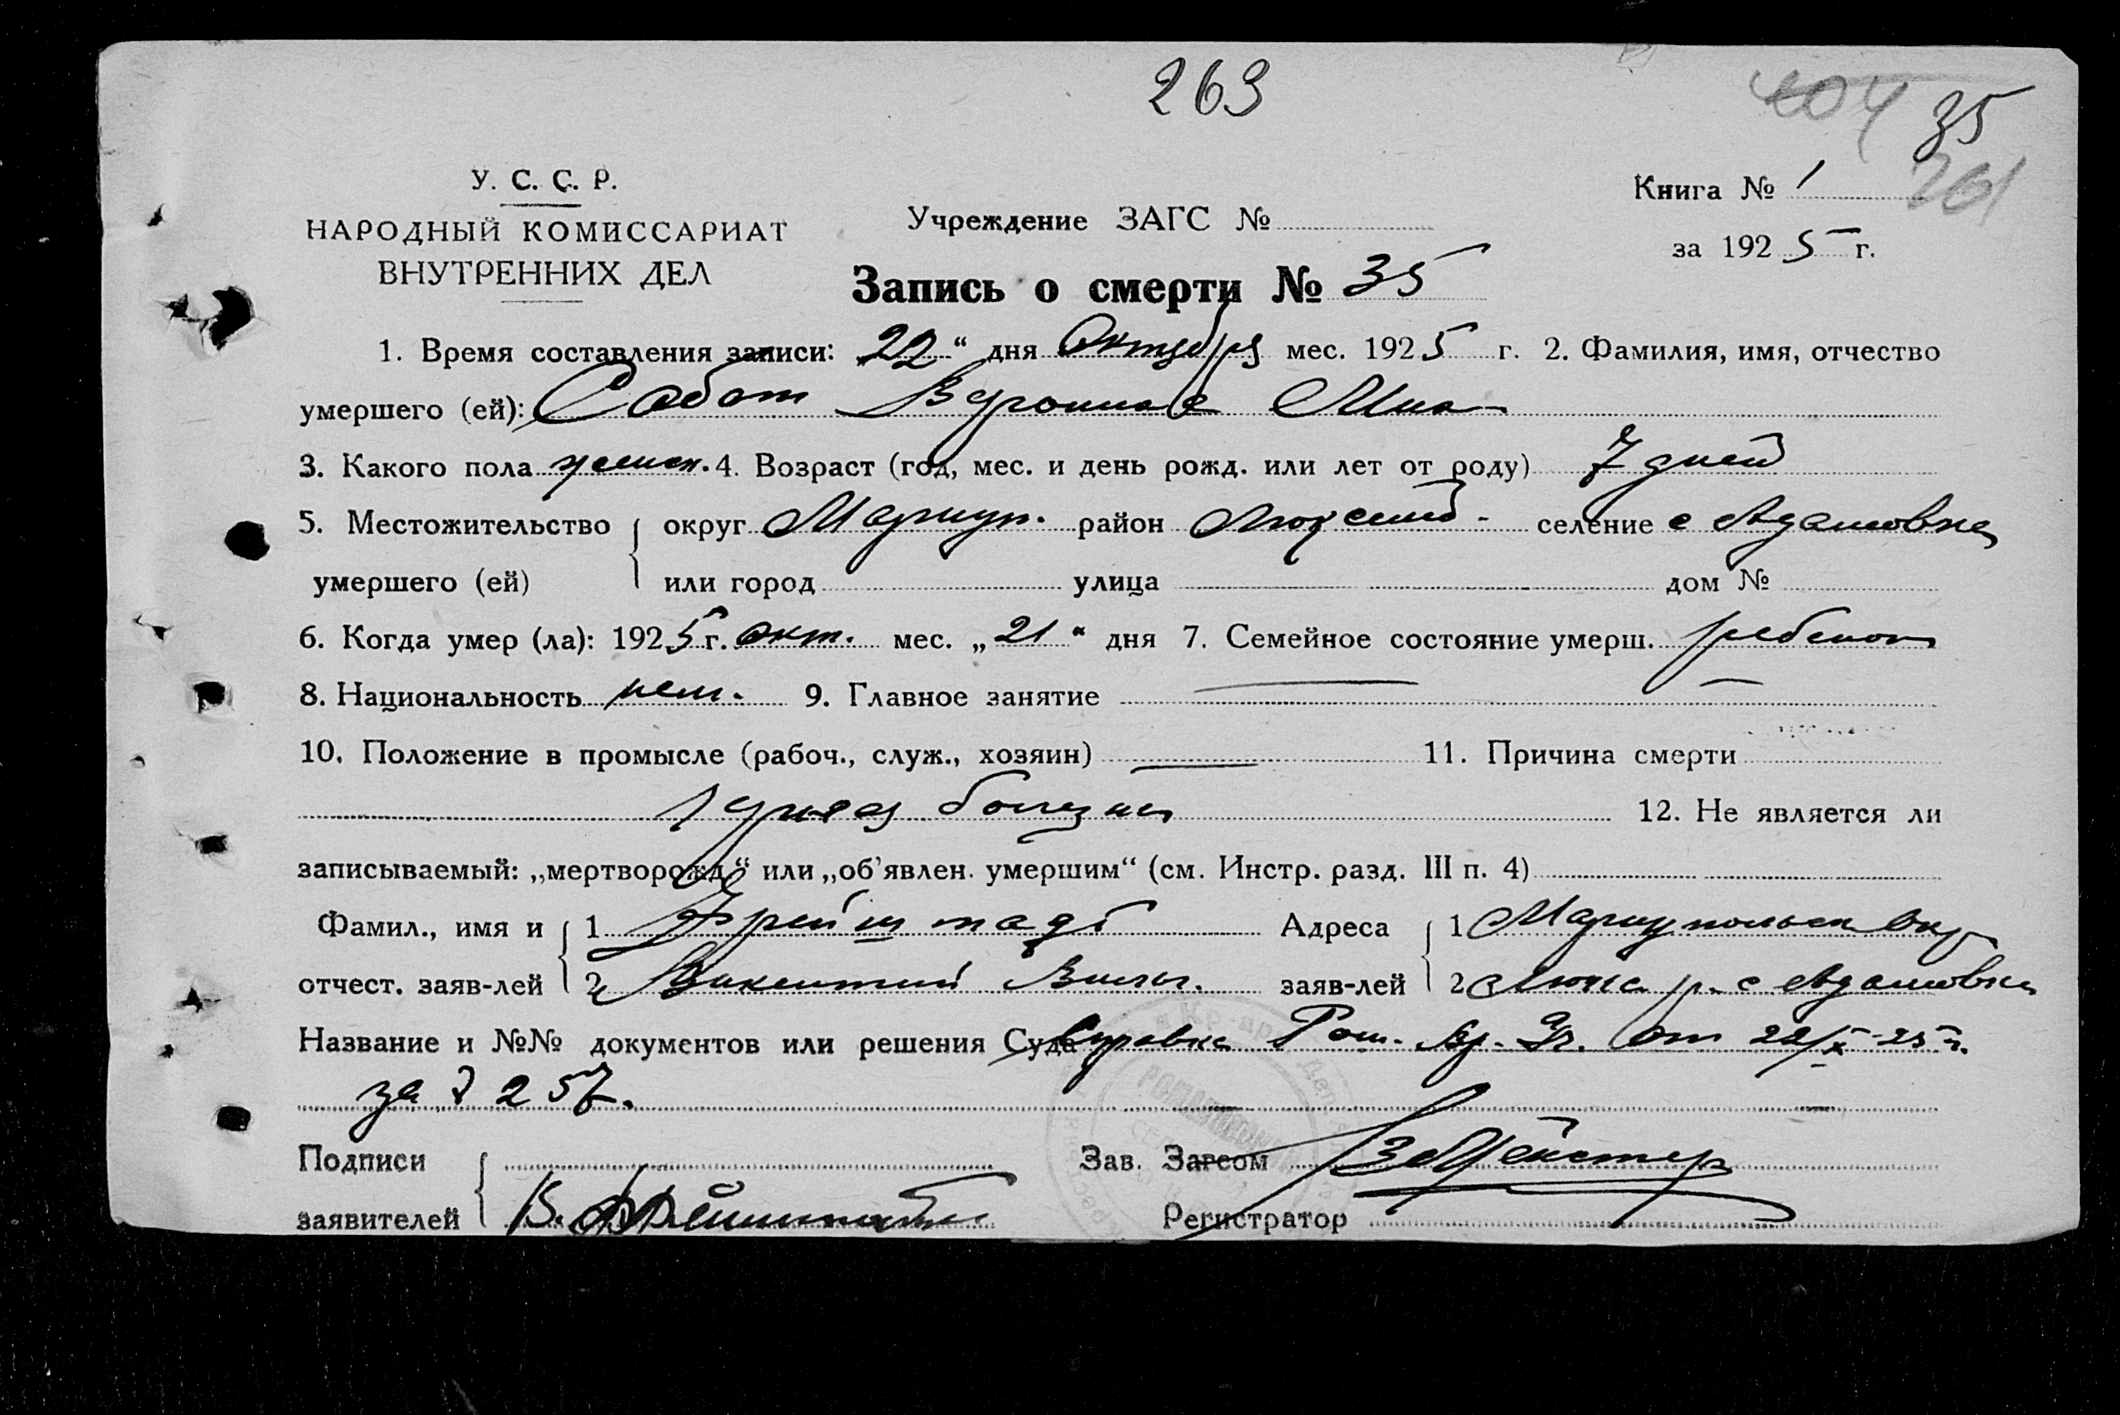 263
404 35
261
У. С. С. Р.
НАРОДНЫЙ КОМИССАРИАТ
ВНУТРЕННИХ ДЕЛ
Учреждение ЗАГС №
Книга № 1
за 1925 г.
Запись о смерти № 35
1. Время составления записи: „22“ дня Октября мес. 1925 г. 2. Фамилия, имя, отчество
умершего (ей): Сабот
3. Какого пола женск. 4. Возраст (год, мес. и день рожд. или лет от роду) 7 дней
5. Местожительство округ Мариуп. район Люксемб. селение с Адамовка
умершего (ей) или город улица дом №
6. Когда умер (ла): 1925 г. окт. мес. „21“ дня 7. Семейное состояние умерш. ребенок
8. Национальность нем. 9. Главное занятие —
10. Положение в промысле (рабоч., служ., хозяин) — 11. Причина смерти
болезнь 12. Не является ли
записываемый: „мертворожд“ или „об'явлен. умершим“ (см. Инстр. разд. III п. 4)
Фамил., имя и 1 Фрейштадт Адреса 1 Мариупольск Окр
отчест. заяв-лей 2 Викентий Вильг. заяв-лей 2 Люкс. р. с Адамовка
Название и №№ документов или решения Суда Справка от 22/X-25 г.
за № 257.
Подписи Зав. Загсом
заявителей В. Фрейштадт Регистратор